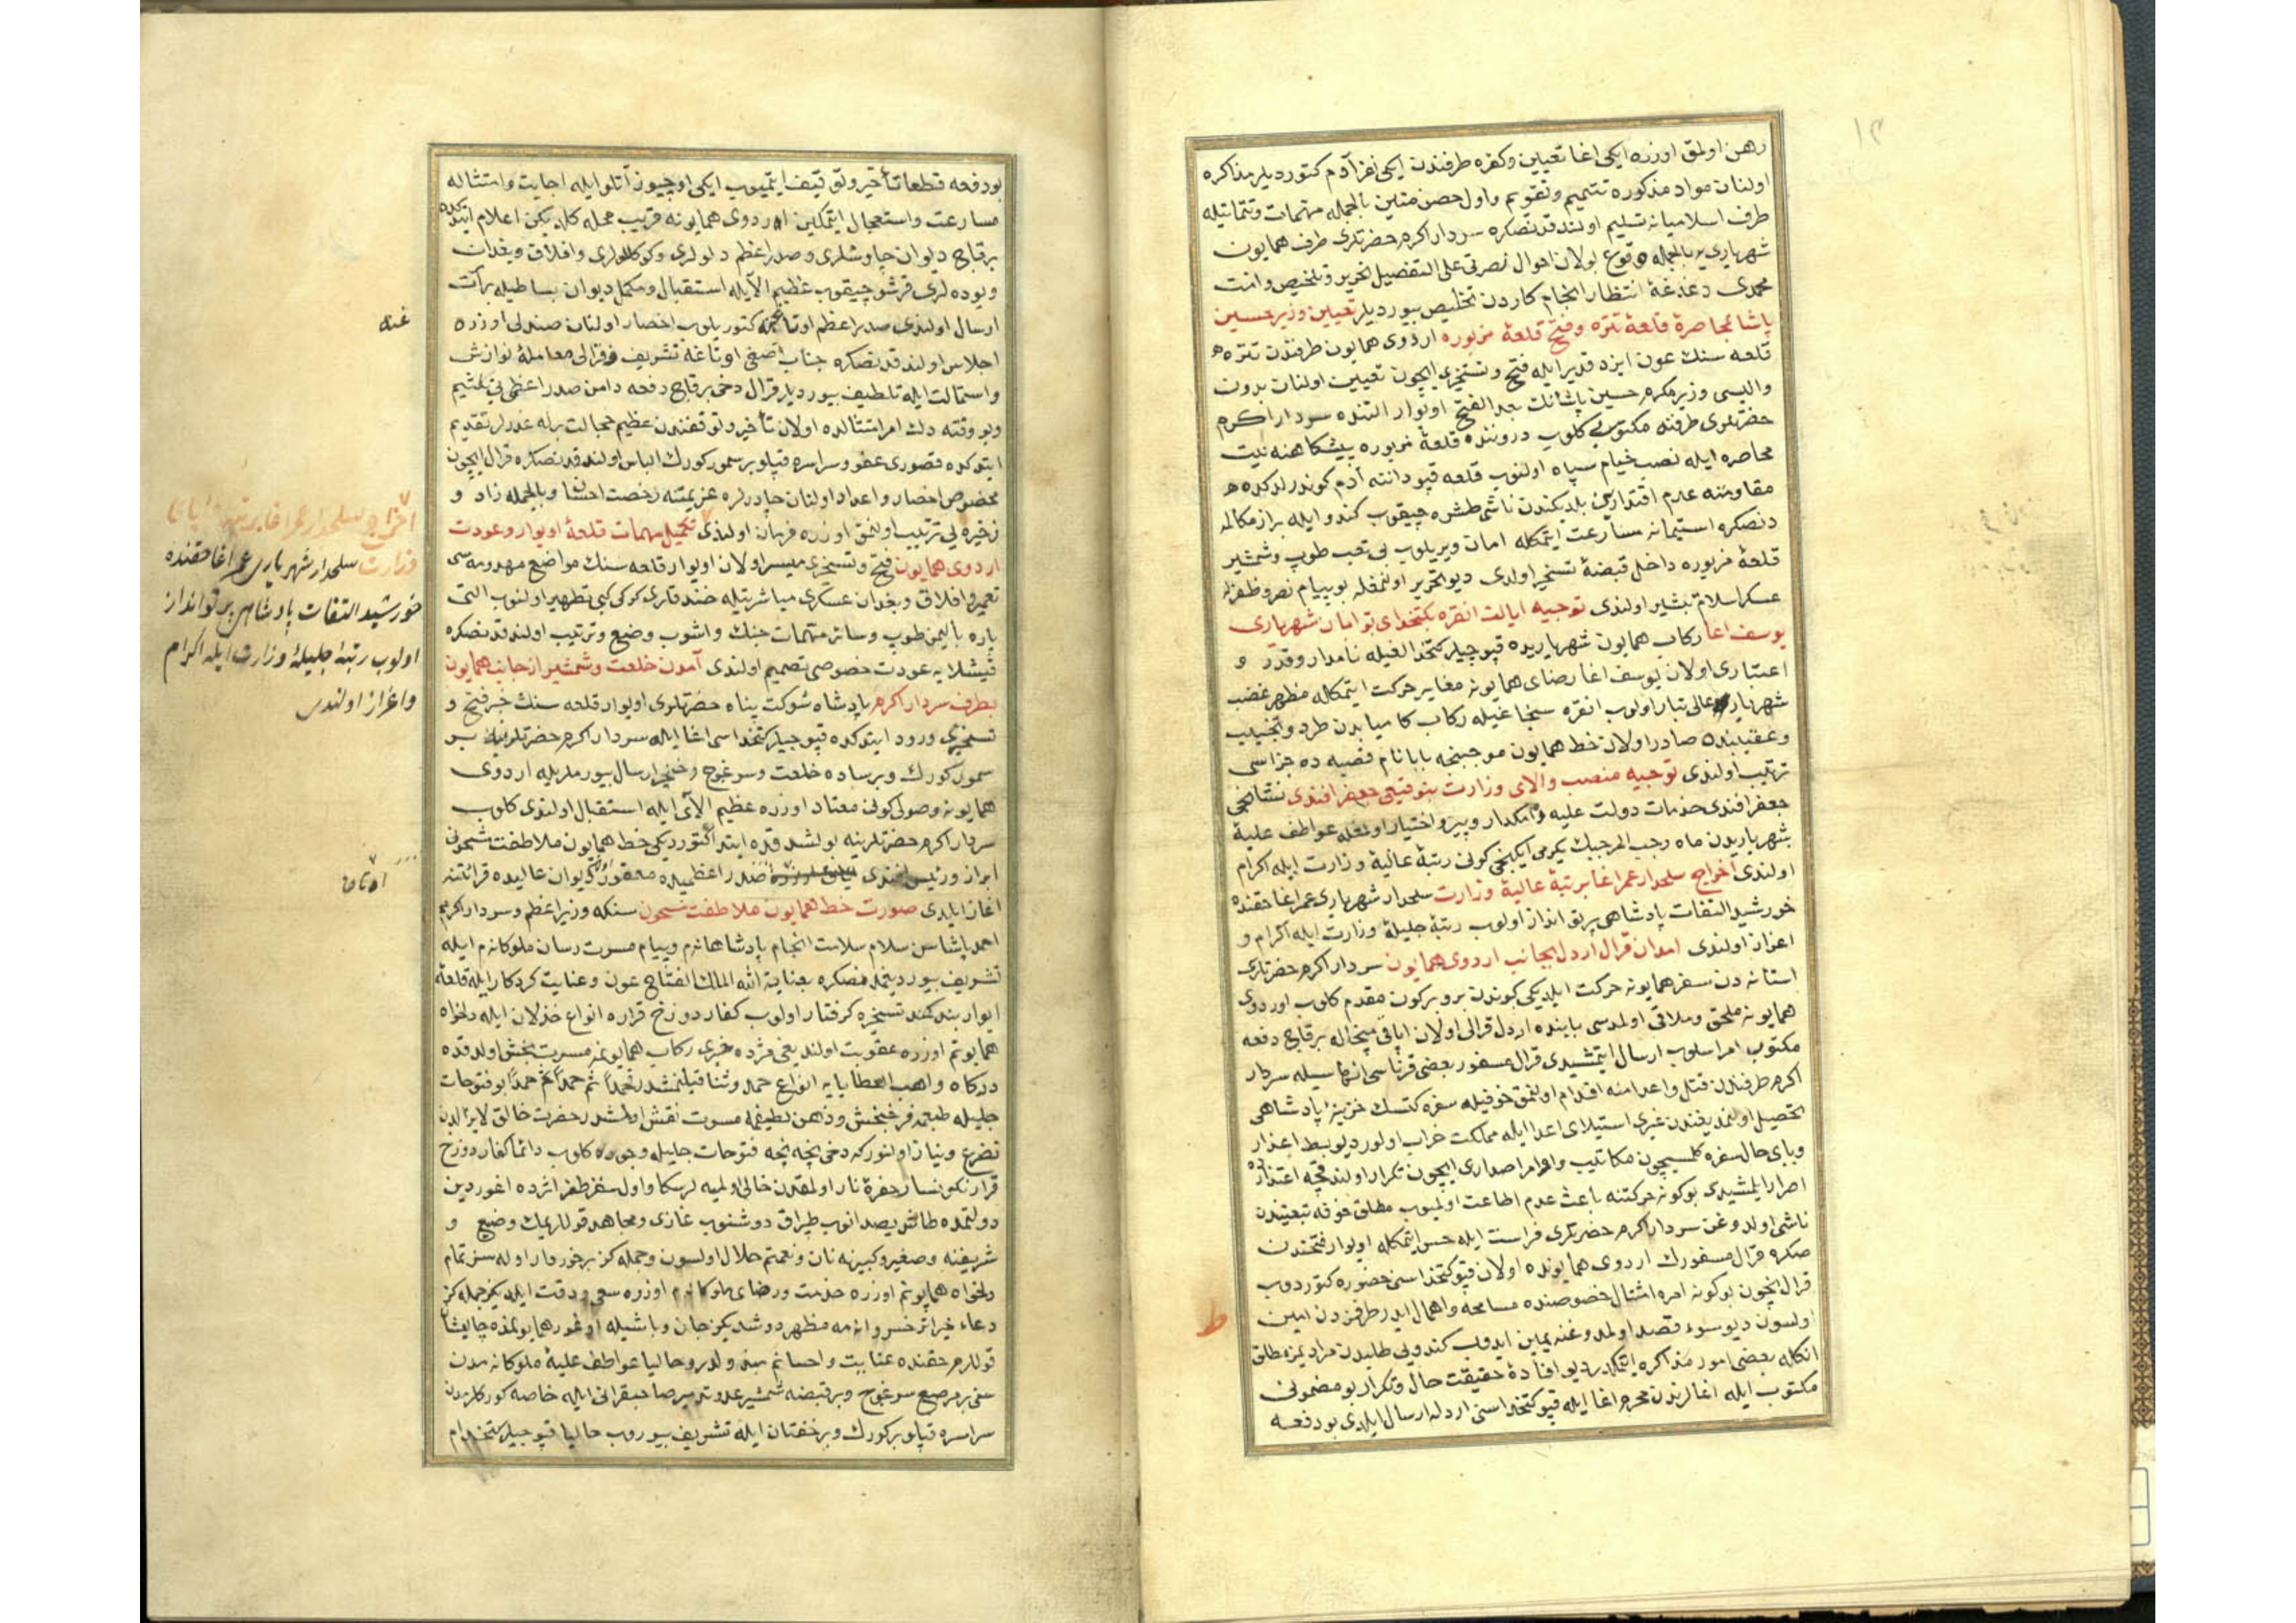 رهن اولمق اوزره ایکی اغا تعیین وکفره طرفندن ایکی نفر آدم کتوردیلر مذاکره
اولنان مواد مذکوره تتمیم وتقویم واول حصن متین بالجمله مهمات وتتماتیله
طرف اسلامیانه تسلیم اولندقدنصکره سردار اکرم حضرتلری طرف همایون
شهریاری یه بالجمله وقوع بولان احوال نصرتی علی التفصیل تحریر وتلخیص وامت
محمدی دغدغهٔ انتظار انجام کاردن تخلیص بیوردیلر تعیین وزیر حسین
پاشا بمحاصرهٔ قلعهٔ نتره وفتح قلعهٔ مزبوره اردوی همایون طرفندن نتره
قلعه سنك عون ایزد قدیر ایله فتح وتسخیری ایچون تعیین اولنان بدون
والیسی وزیر مکرم حسین پاشانك بعد الفتح اویوار التنده سردار اکرم
حضرتلری طرفنه مکتوبی کلوب دروننده قلعهٔ مزبوره پیشکاهنه نیت
محاصره ایله نصب خیام سپاه اولنوب قلعه قپودانته آدم کوندرلدکده
مقاومته عدم اقتدارین بلدیکندن ناشی طشره چیقوب کندو ایله براز مکالمه
دنصکره استیمانه مسارعت ایتمکله امان ویریلوب بی تعب طوپ وشمشیر
قلعهٔ مزبوره داخل قبضهٔ تسخیر اولدی دیو تحریر اولنمغله بو پیام نصر وظفرله
عسکر اسلام تبشیر اولندی توجیه ایالت انقره بکتخدای بوابان شهریاری
یوسف اغا رکاب همایون شهریاریده قپوجیلر کتخدالغیله نامدار وقدر و
اعتباری اولان یوسف اغا رضای همایونه مغایر حرکت ایتمکله مظهر غضب
شهریار عالی تبار اولوب انقره سنجاغیله رکاب کامیابدن طرد وتجنیب
وعقیبنده صادر اولان خط همایون موجبنجه بابا نام قصبه ده جزاسی
ترتیب اولندی توجیه منصب والای وزارت بتوقیعی جعفر افندی نشانجی
جعفر افندی خدمات دولت علیه ده امکدار وپیر واختیار اولمغله عواطف علیهٔ
شهریاریدن ماه رجب المرجبك یکرمی ایکنجی کونی رتبهٔ عالیهٔ وزارت ایله اکرام
اولندی اخراج سلحدار عمر اغا برتبهٔ عالیهٔ وزارت سلحدار شهریاری عمر اغا حقنده
خورشید التفات پادشاهی پرتو انداز اولوب رتبهٔ جلیلهٔ وزارت ایله اکرام و
اعزاز اولندی امدان قرال اردل بجانب اردوی همایون سردار اکرم حضرتلری
استانه دن سفر همایونه حرکت ایلدیکی کوندن برو برکون مقدم کلوب اوردوی
همایونه ملحق وملاقی اولمدسی بابنده اردل قرالی اولان اپافی میخاله برقاج دفعه
مکتوب امر اسلوب ارسال ایتمشیدی قرال مسفور بعضی قرناسی انهاسیله سردار
اکرم طرفندن قتل واعدامنه اقدام اولنمق خوفیله سفره کتسك خزینهٔ پادشاهی
تحصیل اولنمدیغندن غیری استیلای اعدا ایله مملکت خراب اولور دیو بسط اعذار
وبای حال سفره کلمسیچون مکاتیب واوامر اصداری ایچون تکرار اولندقجه اعتذارده
اصرار ایلمشیدی بو کونه حرکتنه باعث عدم اطاعت اولمیوب مطلق خوفه تبعیتندن
ناشی اولدوغن سردار اکرم حضرتلری فراست ایله حس ایتمکله اویوار فتحندن
صکره قرال مسفورك اردوی همایونده اولان قپوکتخداسن حضوره کتوردوب
قرال ایچون بو کونه امره امتثال خصوصنده مسامحه واهمال ایدر طرفمزدن امین
اولسون دیو سوء قصد اولمدوغنه یمین ایدوب کندویی طلبدن مرادیمز مطلق
انکله بعضی امور مذاکره ایتمکدر دیو افادهٔ حقیقت حال وتکرار بو مضمونی
مکتوب ایله اغالرندن محرم اغا ایله قپوکتخداسنی اردله ارسال ایلدی بو دفعه
ط
بو دفعه قطعا تأخیر وتوقیف ایتمیوب ایکی اوچیوز آتلو ایله اجابت وامتثاله
مسارعت واستعجال ایتمکین اوردوی همایونه قریب محله کلدیکن اعلام ایتدکده
برقاج دیوان چاوشلری وصدر اعظم دلولری وکوکللولری وافلاق وبغدان
ویوده لری قرشو چیقوب عظیم الای ایله استقبال ومکمل دیوان بساطیله برات
ارسال اولندی صدر اعظم اوتاغنه کتوریلوب احضار اولنان صندلی اوزره
اجلاس اولندقدنصکره جناب آصفی اوتاغه تشریف وقرالی معاملهٔ نوازش
واستمالت ایله تلطیف بیوردیلر قرال دخی برقاج دفعه دامن صدر اعظمی بی تلثیم
وبو وقته دك امر امتثالده اولان تأخیر وتوقفندن عظیم خجالت برله عذرلر تقدیم
ایتدکده قصوری عفو وسراسره قپلو بر سمور کورك الباس اولندقدنصکره قرال ایچون
مخصوص احضار واعداد اولنان چادرلره عزیمتنه رخصت احسان وبالجمله زاد و
زخیره لی ترتیب اولنمق اوزره فرمان اولندی تکمیل مهمات قلعهٔ اویوار وعودت
اردوی همایون فتح وتسخیری میسر اولان اویوار قلعه سنك مواضع مهدومه سی
تعمیر وافلاق وبغدان عسکری مباشرتیله خندقلری کوکی کبی تطهیر اولنوب التی
پاره بالیمز طوپ وسائر مهمات جنك واشوب وضع وترتیب اولندقدنصکره
قیشلایه عودت خصوصی تصمیم اولندی آمدن خلعت وشمشیر از جانب همایون
بطرف سردار اکرم پادشاه شوکت پناه حضرتلری اویوار قلعه سنك خبر فتح و
تسخیری ورود ایتدکده قپوجیلر کتخداسی اغا ایله سردار اکرم حضرتلرینه بر
سمور کورك وبر ساده خلعت وسرغوج وخنجر ارسال بیورملریله اردوی
همایونه وصولی کونی معتاد اوزره عظیم الای ایله استقبال اولندی کلوب
سردار اکرم حضرتلرینه بولشدقده ابتدا کتوردیکی خط همایون ملاطفت مشحونی
ابراز ورئیس افندی صدر اعظمیده معقود دیوان عالیده قرائتنه
اغاز ایلدی صورت خط همایون ملاطفت مشحون سنکه وزیر اعظم وسردار اکرمم
احمد پاشاسن سلام سلامت انجام پادشاهانهم وپیام مسرت رسان ملوکانهم ایله
تشریف بیوردیغمدنصکره بعنایة الله الملك الفتاح عون وعنایت کردکار ایله قلعهٔ
ایوار بند کمند تسخیره کرفتار اولوب کفار دوزخ قراره انواع خذلان ایله دلخواه
همایونم اوزره عقوبت اولندیغی مژده خبری رکاب همایونمه مسرت بخش اولدقده
درکاه واهب العطایایه انواع حمد وثنا قیلنمشدر حمداً ثم حمداً ثم حمداً بو فتوحات
جلیله طبعمه فرح بخش وذهن لطیفمه مسرت نقش اولمشدر حضرت خالق لایزالدن
تضرع ونیاز اولنورکه دخی نیجه نیجه فتوحات جلیله وجوده کلوب دائما کفار دوزخ
قرار نکونسار حفرهٔ نار اولمقدن خالی اولمیه لر سکا واول سفر ظفر اثرده اغور دین
دولتمده طاش یصدانوب طپراق دوشنوب غازی ومجاهد قوللریمك وضیع و
شریفنه وصغیر وکبیرنه نان ونعمتم حلال اولسون وجمله کز برخوردار اوله سز تمام
دلخواه همایونم اوزره خدمت ورضای ملوکانهم اوزره سعی ودقت ایلدیکز جمله کز
دعاء خیر اثر خسروانه مه مظهر دوشدیکز جان وباشیله اوغور همایونمده چالیشان
قوللرم حقنده عنایت واحسانم بیدر ولدر وحالیا عواطف علیهٔ ملوکانه مدن
سنی بر مرصع سرغوج وبر قبضه شمشیر عدو تدبیر صاحبقرانی ایله خاصه کورکلریمدن
سراسره قپلو بر کورك وبر خفتان ایله تشریف بیوروب حالیا قپوجیلر کتخدام
اخراج سلحدار عمر اغا برتبهٔ
وزارت سلحدار شهریاری عمر اغا حقنده
خورشید التفات پادشاهی پرتو انداز
اولوب رتبهٔ جلیلهٔ وزارت ایله اکرام
واعزاز اولندی